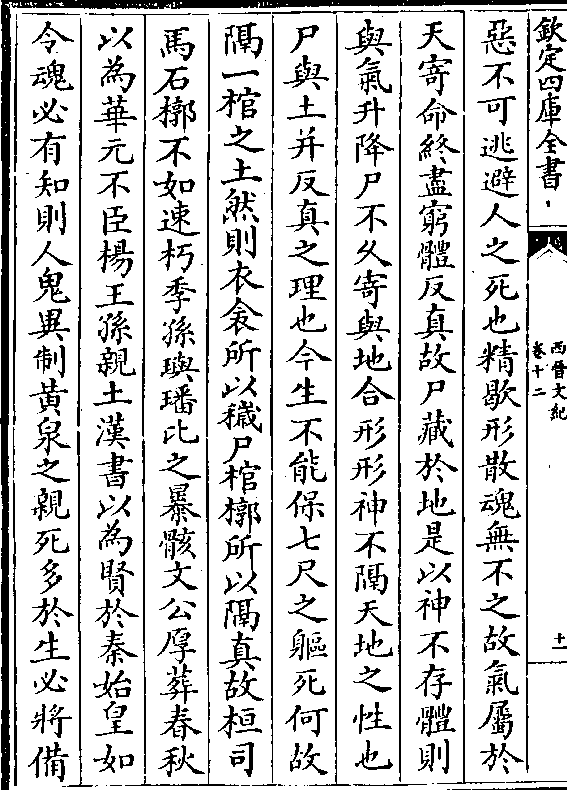 欽定四庫全書
西晉文紀
卷十二
十一
惡不可逃避人之死也精歇形散魂無不之故氣屬於
天寄命終盡窮體反真故尸藏於地是以神不存體則
與氣升降尸不久寄與地合形形神不隔天地之性也
尸與土并反真之理也今生不能保七尺之軀死何故
隔一棺之土然則衣衾所以穢尸棺槨所以隔真故桓司
馬石槨不如速朽季孫璵璠比之暴骸文公厚葬春秋
以為華元不臣楊王孫親土漢書以為賢於秦始皇如
令魂必有知則人鬼異制黃泉之親死多於生必將備